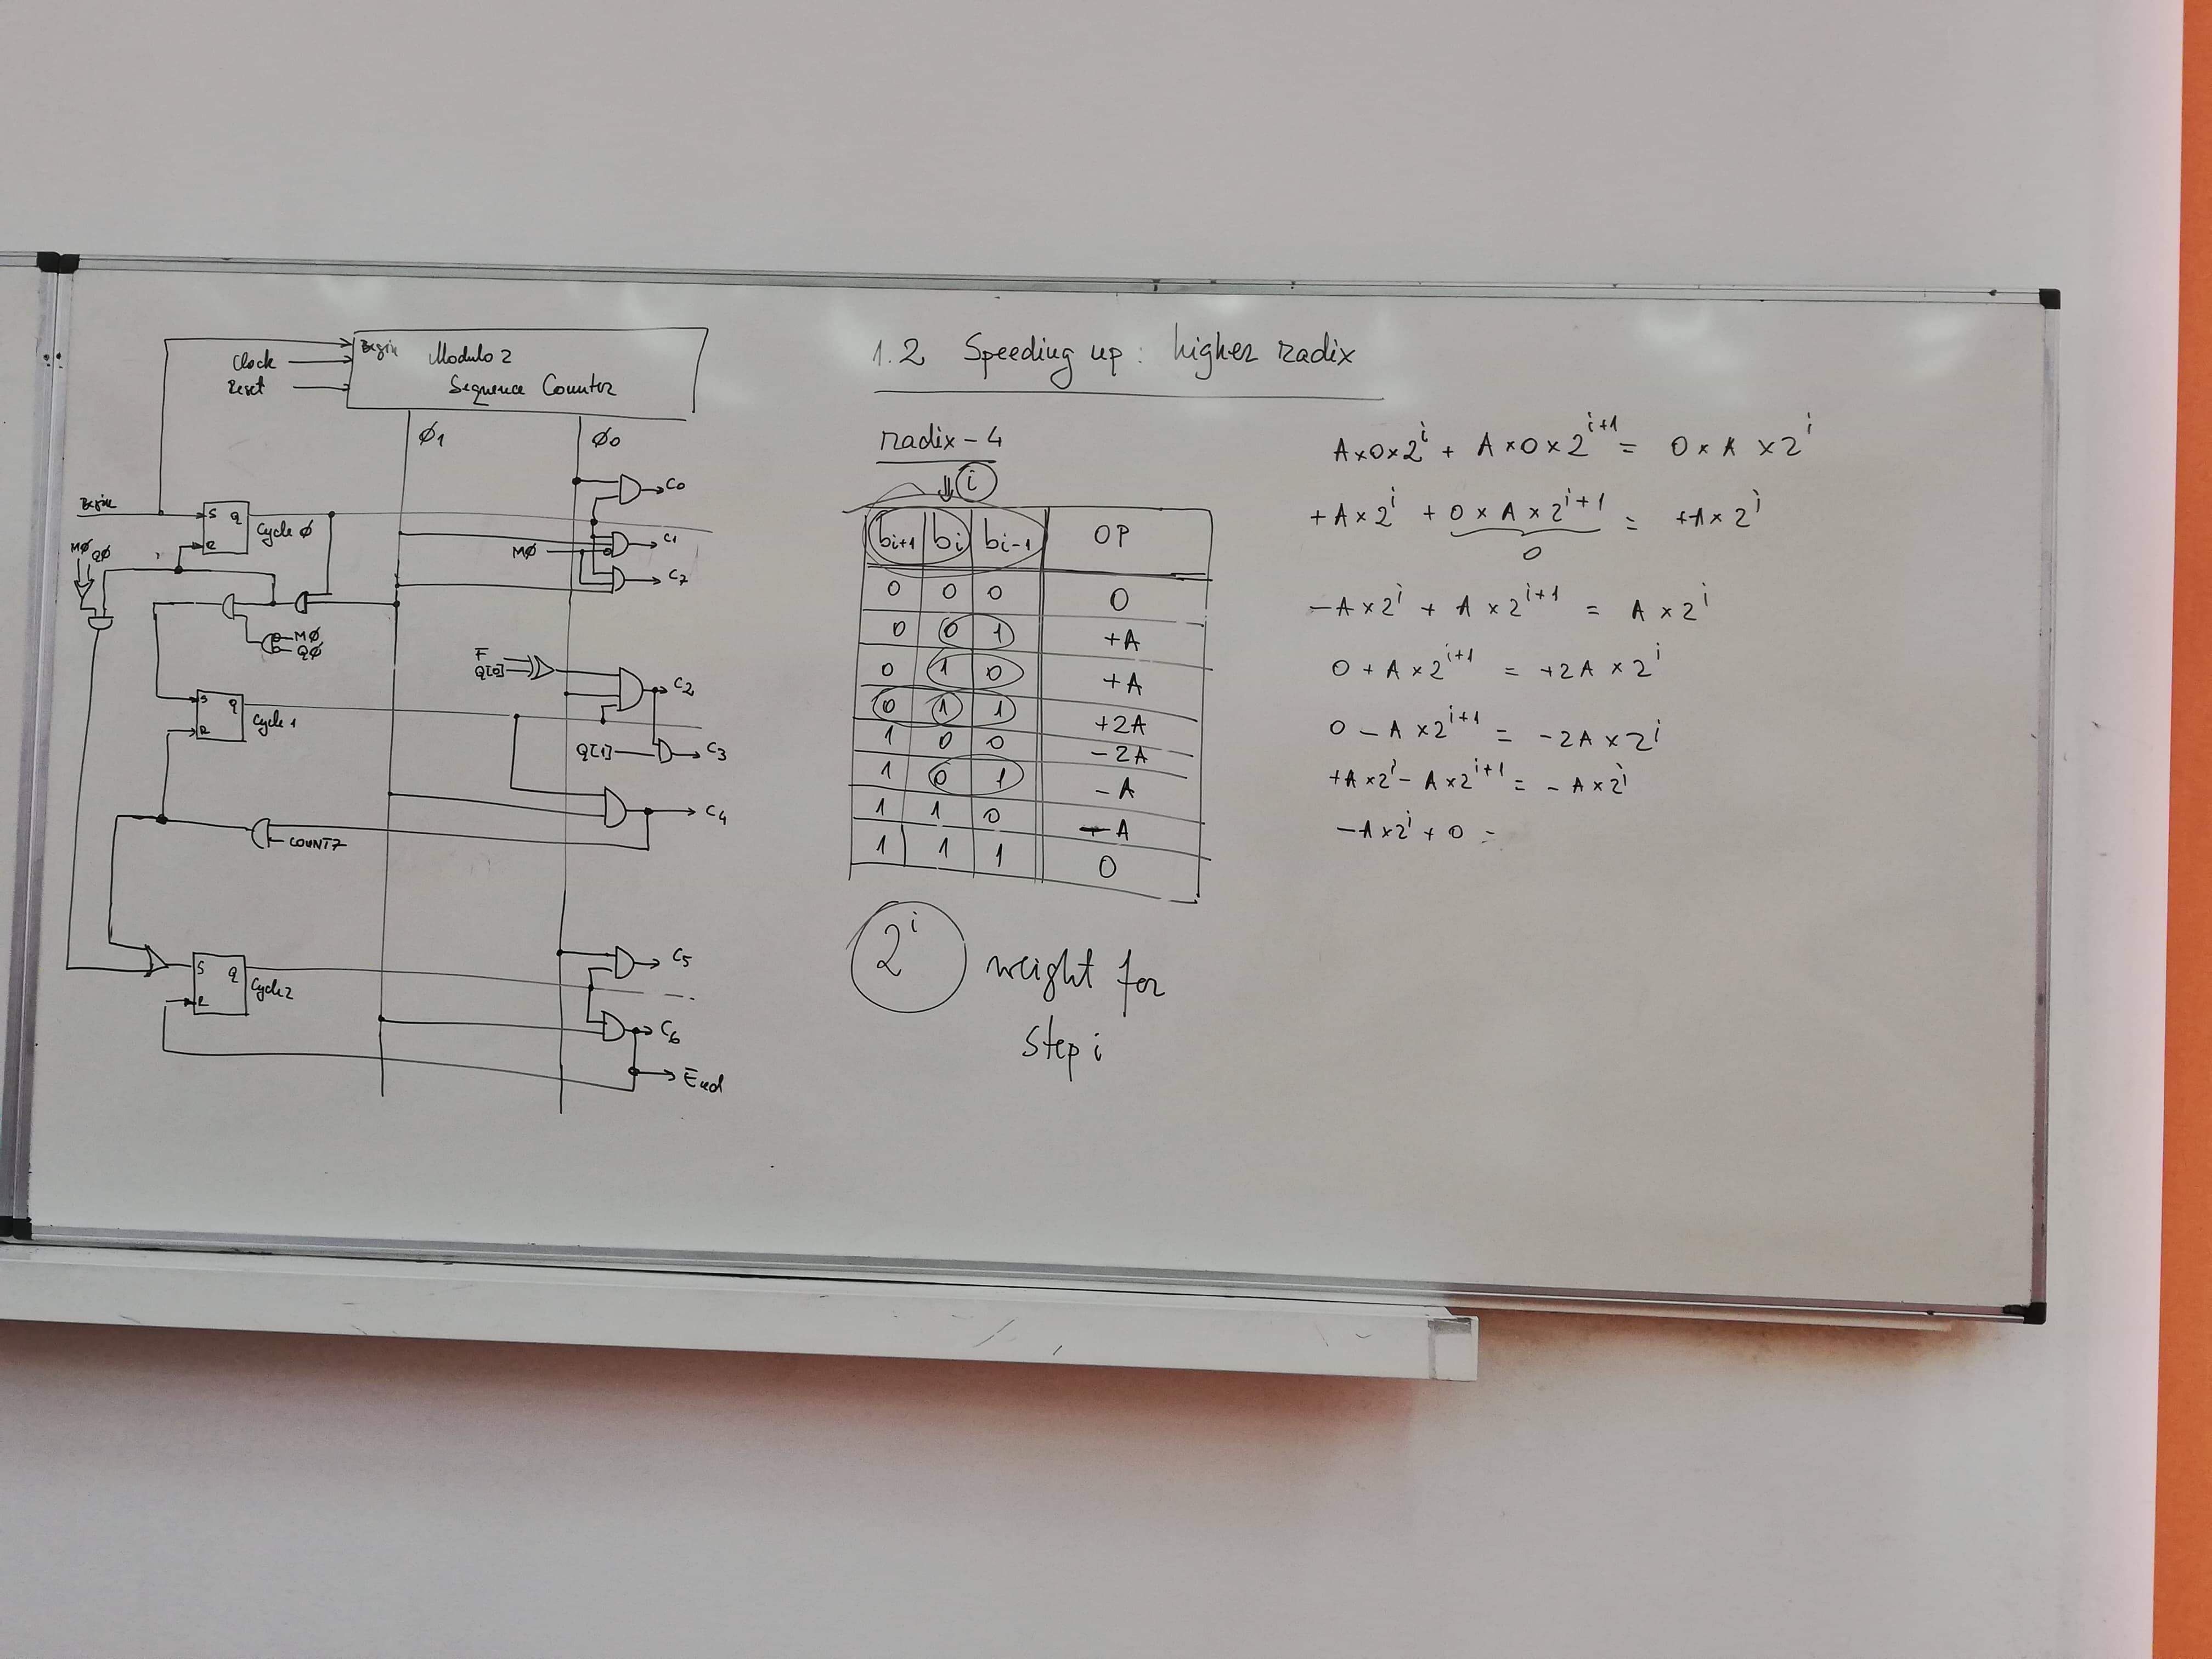 Begin
Clock
Modulo 2
Reset
Sequence Counter
Φ1
Φ0
C0
Begin
S Q
Cycle Φ
R
MΦ
C1
MΦ QΦ
C7
MΦ
QΦ
F
Q[0]
C2
S Q
Cycle 1
R
Q[1]
C3
C4
COUNT7
C5
S Q
Cycle 2
R
C6
End
1.2 Speeding up: higher radix
radix-4
⇓ i
bi+1 bi bi-1 OP
0 0 0 0
0 0 1 +A
0 1 0 +A
0 1 1 +2A
1 0 0 -2A
1 0 1 -A
1 1 0 -A
1 1 1 0
2^i weight for
step i
A×0×2^i + A×0×2^i+1 = 0×A×2^i
+A×2^i + 0×A×2^i+1 = +A×2^i
0
-A×2^i + A×2^i+1 = A×2^i
0 + A×2^i+1 = +2A×2^i
0 - A×2^i+1 = -2A×2^i
+A×2^i - A×2^i+1 = -A×2^i
-A×2^i + 0 =